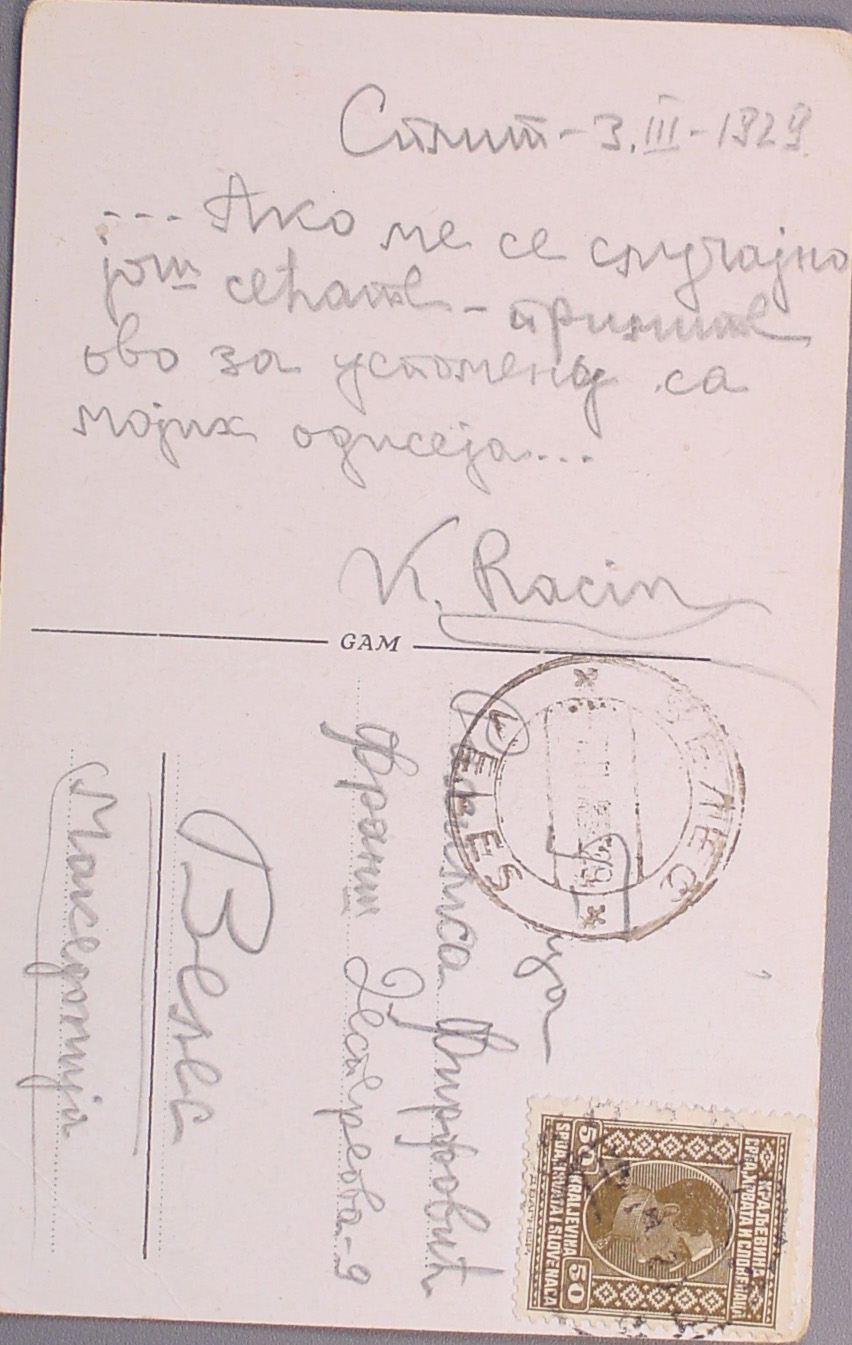 Сплит - 3. III - 1929
... Ако ме се случајно
још сећате - примите
ово за успомену са
мојих одисеја...
K. Racin
GAM
ВЕЛЕС
VELES
Г-ца
Раҳилка Фирфовић
Франш Депереова - 9
Велес
Македонија
КРАЉЕВИНА
СРБА, ХРВАТА И СЛОВЕНАЦА
50 KRALJEVINA 50
SRBA, HRVATA I SLOVENACA